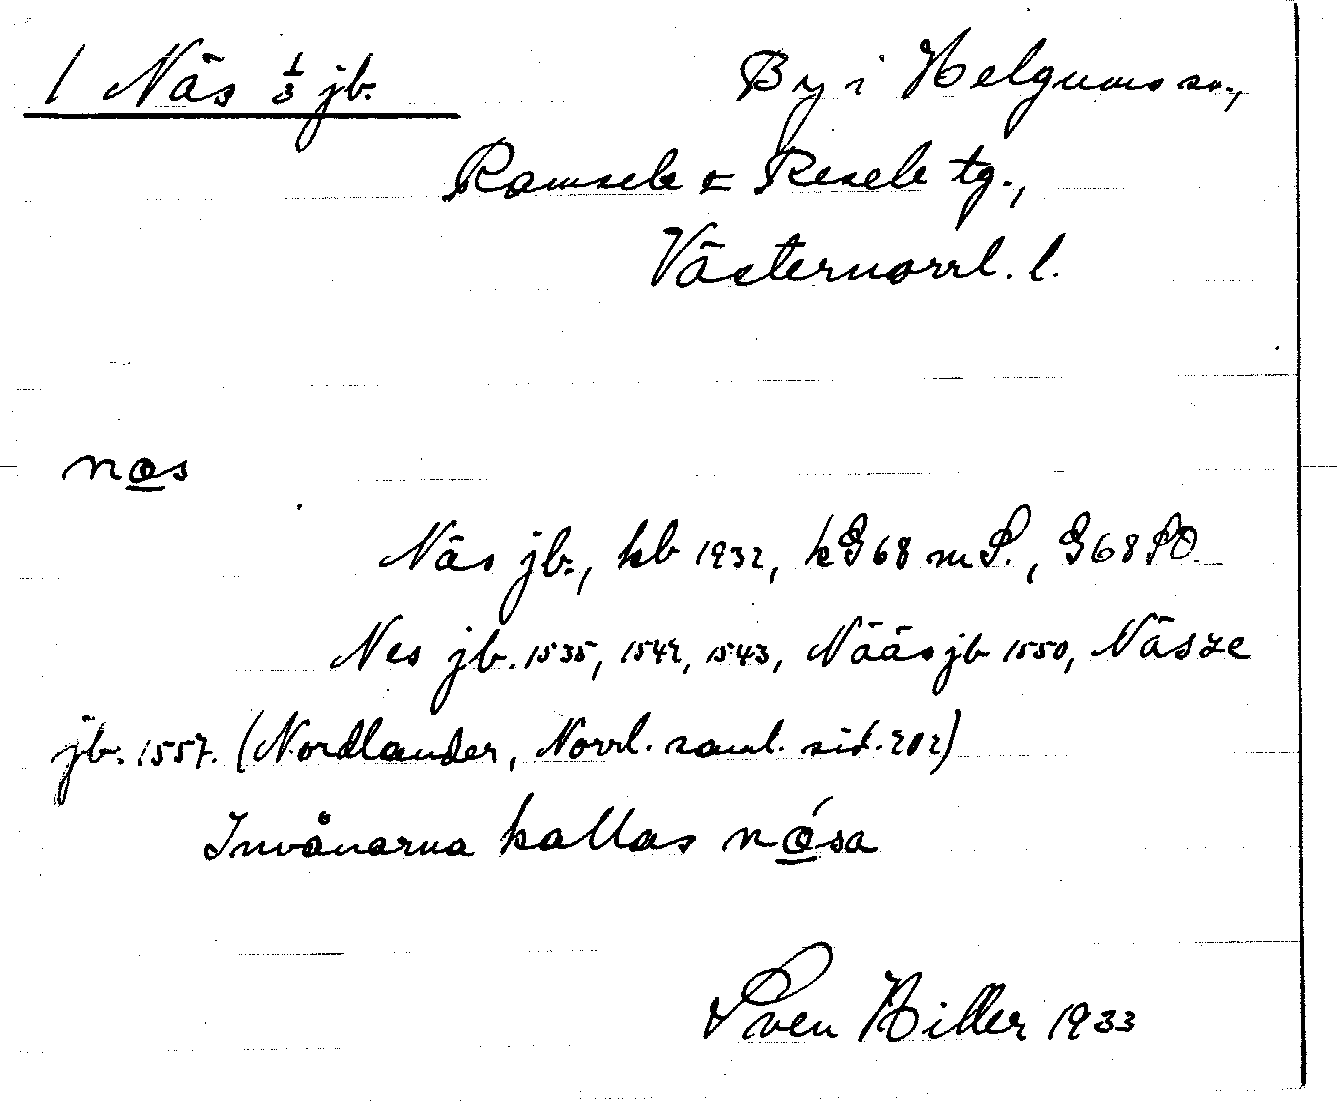 1 Näs 1/3 jb. By i Helgums sn.,
Ramsele o Resele tg.,
Västernorrl. l.
nas
Näs jb., kb 1932, kG68 m S., G68 SO
Nes jb. 1535, 1542, 1543, Nääs jb 1550, Näsze
jb. 1557. (Nordlander, Norrl. saml. sid. 202)
Invånarna kallas nása
Sven Hiller 1933